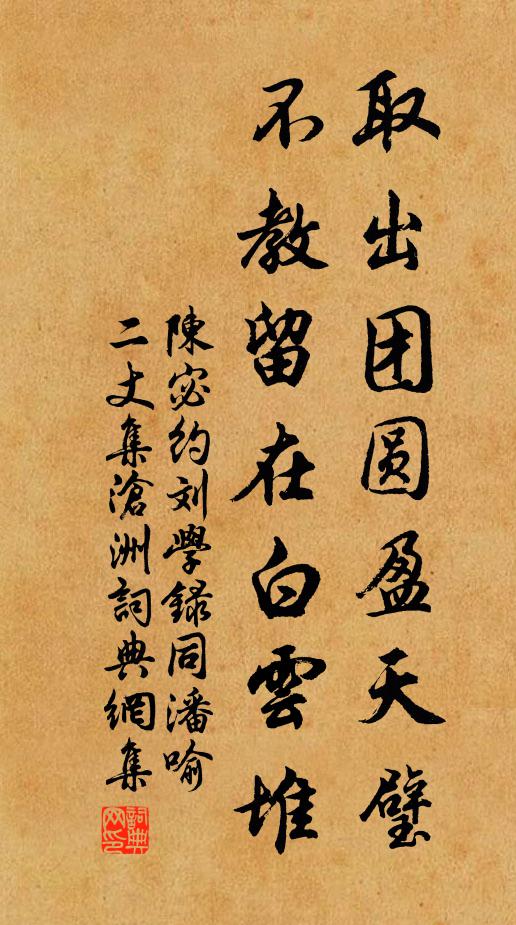 取出团圆盈天璧
不教留在白雲堆
陳宓约刘學録同潘喻
二丈集滄洲詞典網集
詞典
网印